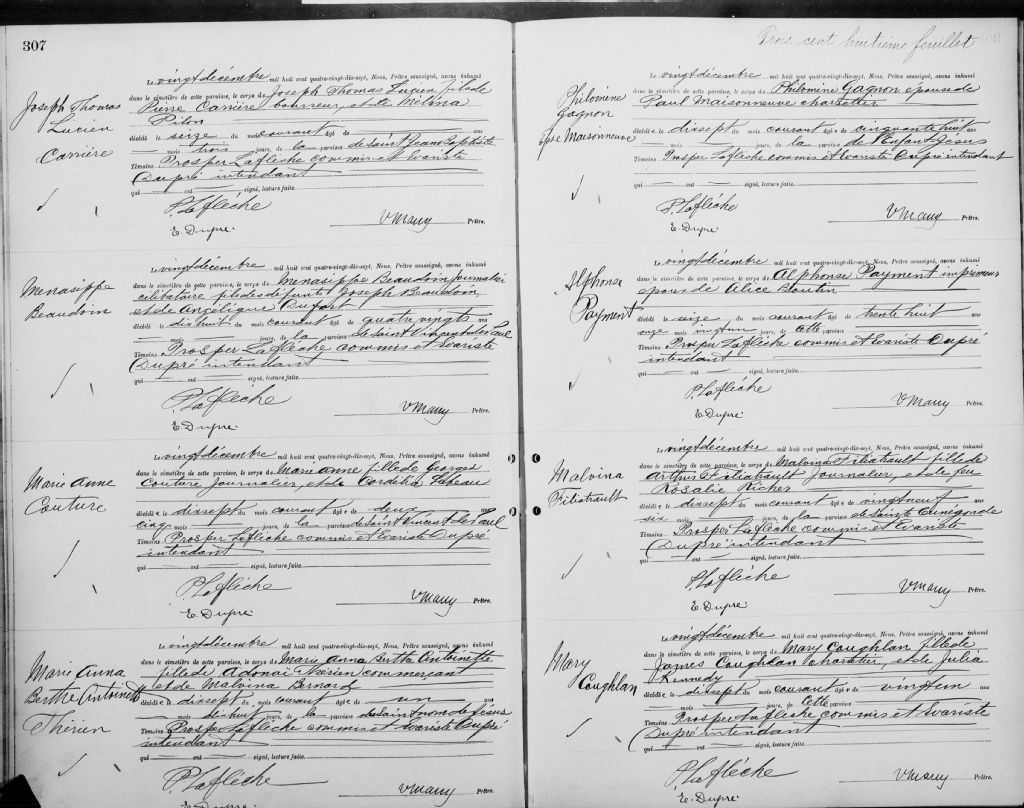 307
Joseph Thomas
Lucien
Carrière
Le vingt décembre mil huit cent quatre-vingt-dix-sept, Nous, Prêtre soussigné, avons inhumé
dans le cimetière de cette paroisse, le corps de Joseph Thomas Lucien fils de
Pierre Carrière bourreur, et de Mélina
Pilon
décédé le seize du mois courant âgé de
mois trois jours, de la paroisse de Saint Jean Baptiste
Témoins Prosper Laflèche commis et Evariste
Dupré intendant
qui — ont — signé, lecture faite.
P. Laflèche
E. Dupré
V Mauy Prêtre.
Menasippe
Beaudoin
Le vingt décembre mil huit cent quatre-vingt-dix-sept, Nous, Prêtre soussigné, avons inhumé
dans le cimetière de cette paroisse, le corps de Menasippe Beaudoin Journalier
célibataire fils des défunts Joseph Beaudoin
et de Angélique Dufort
décédé le dix huit du mois courant âgé de quatre vingts ans
mois jours, de la paroisse de Saint Vincent de Paul
Témoins Prosper Laflèche commis et Evariste
Dupré intendant
qui — ont — signé, lecture faite.
P. Laflèche
E. Dupré
V Mauy Prêtre.
Marie Anne
Couture
Le vingt décembre mil huit cent quatre-vingt-dix-sept, Nous, Prêtre soussigné, avons inhumé
dans le cimetière de cette paroisse, le corps de Marie Anne fille de Georges
Couture Journalier, et de Cordélia
décédé e le dix sept du mois courant âgé e de deux ans
cinq mois jours, de la paroisse de Saint Vincent de Paul
Témoins Prosper Laflèche commis et Evariste Dupré
intendant
qui — ont — signé, lecture faite.
P. Laflèche
E. Dupré
V Mauy Prêtre.
Marie Anna
Berthe Antoinette
Thérien
Le vingt décembre mil huit cent quatre-vingt-dix-sept, Nous, Prêtre soussigné, avons inhumé
dans le cimetière de cette paroisse, le corps de Marie Anna Berthe Antoinette
fille de Adonaï Thérien commerçant
et de Malvina Bernard
décédé e le dix sept du mois courant âgé e de un an
mois dix huit jours, de la paroisse du Saint nom de Jésus
Témoins Prosper Laflèche commis et Evariste Dupré
intendant
qui — ont — signé, lecture faite.
P. Laflèche
E. Dupré
V Mauy Prêtre.
Trois cent huitième feuillet
Philomine
Gagnon
Epse Maisonneuve
Le vingt décembre mil huit cent quatre-vingt-dix-sept, Nous, Prêtre soussigné, avons inhumé
dans le cimetière de cette paroisse, le corps de Philomine Gagnon epouse de
Paul Maisonneuve charretier
décédé e le dix sept du mois courant âgé e de cinquante huit ans
mois jours, de la paroisse de l'Enfant Jésus
Témoins Prosper Laflèche commis et Evariste Dupré intendant
qui — ont — signé, lecture faite.
P. Laflèche
E. Dupré
V Mauy Prêtre.
Alphonse
Payment
Le vingt décembre mil huit cent quatre-vingt-dix-sept, Nous, Prêtre soussigné, avons inhumé
dans le cimetière de cette paroisse, le corps de Alphonse Payment imprimeur
epoux de Alice Boutin
décédé le seize du mois courant âgé de trente huit ans
onze mois vingt un jours, de cette paroisse
Témoins Prosper Laflèche commis et Evariste Dupré
intendant
qui — ont — signé, lecture faite.
P. Laflèche
E. Dupré
V Mauy Prêtre.
Malvina
Filiatrault
Le vingt décembre mil huit cent quatre-vingt-dix-sept, Nous, Prêtre soussigné, avons inhumé
dans le cimetière de cette paroisse, le corps de Malvina Filiatrault fille de
Arthur Filiatrault Journalier, et de feu
Rosalie Richer
décédé e le dix sept du mois courant âgé e de vingt neuf ans
six mois jours, de la paroisse de Sainte Cunégonde
Témoins Prosper Laflèche commis et Evariste
Dupré intendant
qui — ont — signé, lecture faite.
P. Laflèche
E. Dupré
V Mauy Prêtre.
Mary
Coughlan
Le vingt décembre mil huit cent quatre-vingt-dix-sept, Nous, Prêtre soussigné, avons inhumé
dans le cimetière de cette paroisse, le corps de Mary Coughlan fille de
James Coughlan charretier, et de Julia
Kennedy
décédé e le dix sept du mois courant âgé e de vingt un ans
mois jours, de cette paroisse
Témoins Prosper Laflèche commis et Evariste
Dupré intendant
qui — ont — signé, lecture faite.
P. Laflèche
E. Dupré
V Mauy Prêtre.